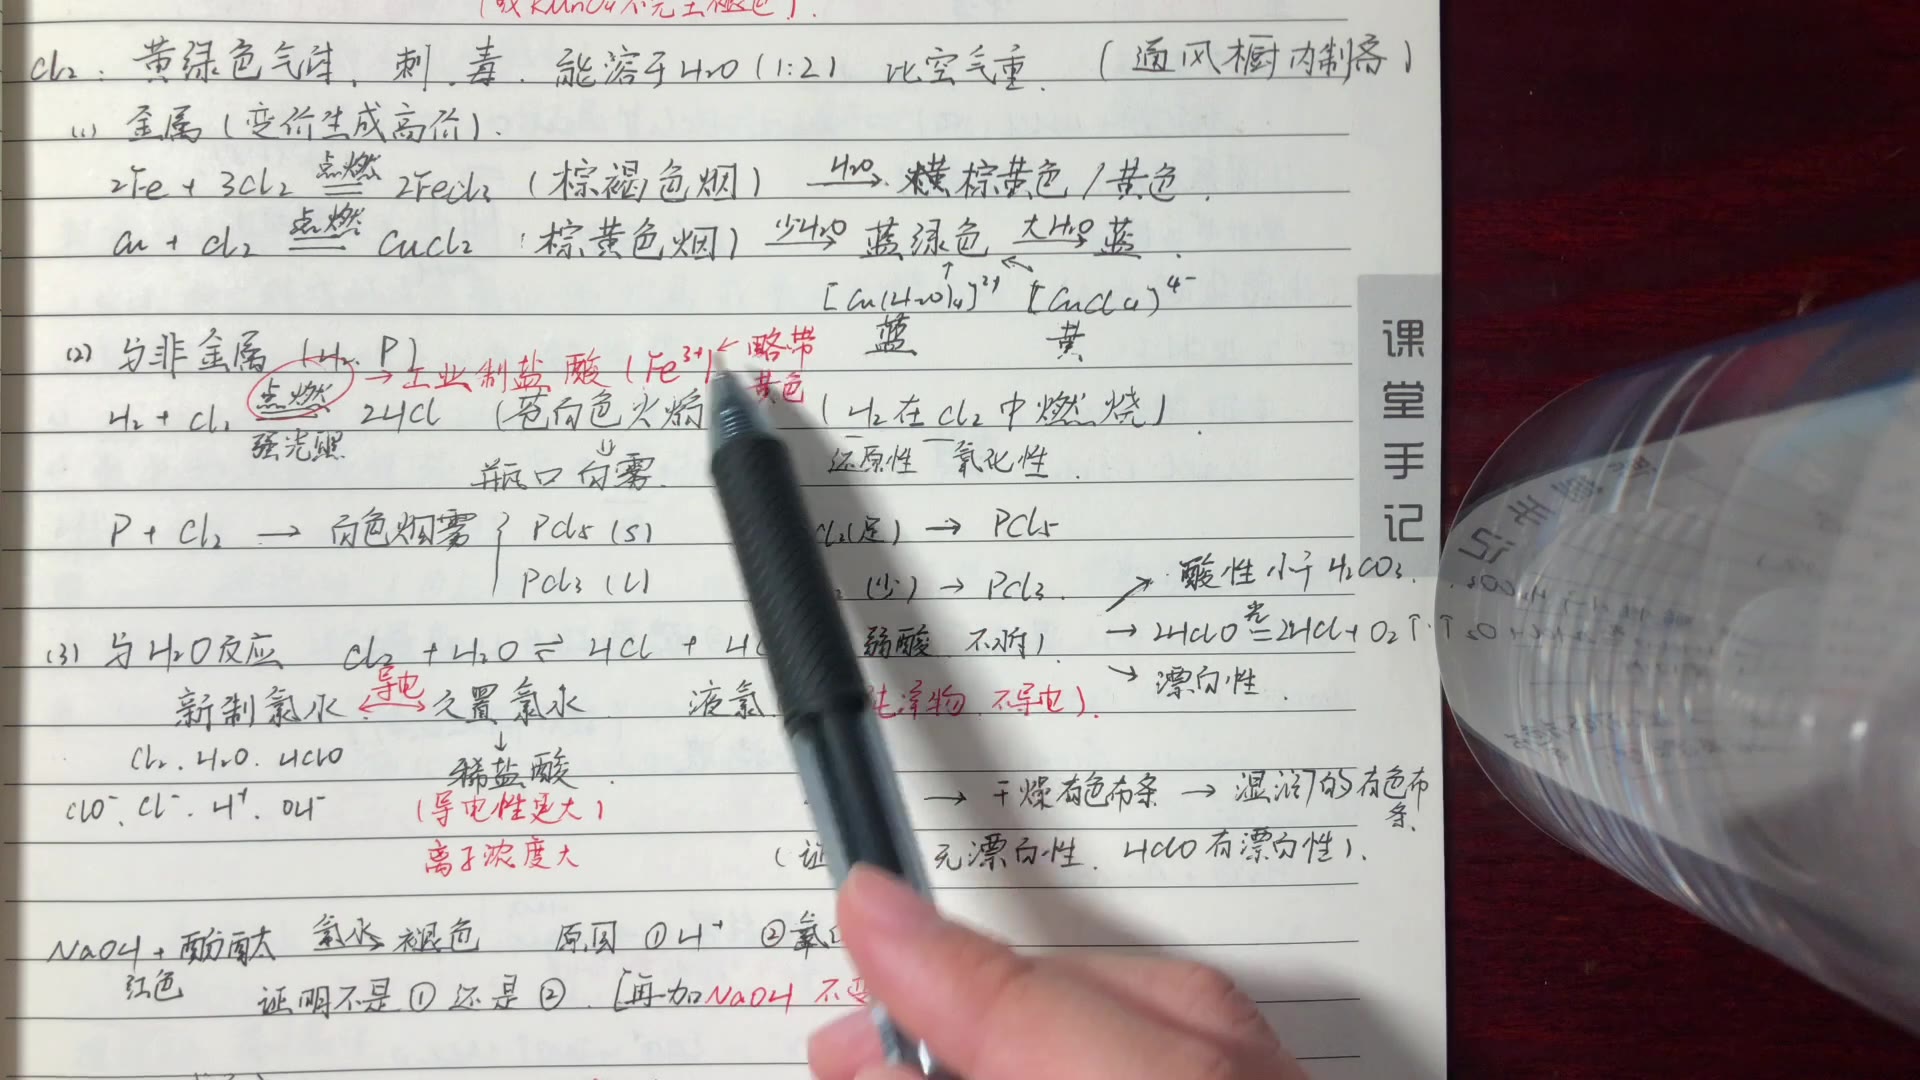 (或KMnO4不完全褪色).
Cl2: 黄绿色气体, 刺, 毒. 能溶于H2O (1:2) 比空气重. (通风橱内制备)
(1) 金属(变价生成高价).
2Fe + 3Cl2 点燃 2FeCl3 (棕褐色烟) H2O→ 棕黄色/黄色.
Cu + Cl2 点燃 CuCl2 (棕黄色烟) 少H2O→ 蓝绿色 大H2O→ 蓝.
[Cu(H2O)4]2+ [CuCl4]4-
蓝 黄
(2) 与非金属 (H2. P)
→工业制盐酸 (Fe3+) ← 略带黄色
H2 + Cl2 点燃 强光照 2HCl (苍白色火焰 (H2在Cl2中燃烧)
⇓ 瓶口白雾. 还原性 氧化性.
P + Cl2 → 白色烟雾 { PCl5 (s) Cl2(足) → PCl5
PCl3 (l) (少) → PCl3.
↗ 酸性小于H2CO3.
(3) 与H2O反应 Cl2 + H2O ⇌ HCl + HC 弱酸 不 → 2HClO 光= 2HCl + O2↑.
→ 漂白性.
新制氯水 导电 久置氯水. 液氯 纯净物. 不导电).
Cl2. H2O. HClO ↓ 稀盐酸.
ClO-. Cl-. H+. OH- (导电性更大)
→ 干燥有色布条 → 湿润的有色布条.
离子浓度大 (证 无漂白性. HClO有漂白性).
NaOH + 酚酞 氯水→ 褪色 原因 ①H+ ②氧
红色 证明不是①还是②. [再加NaOH 不变
课堂手记